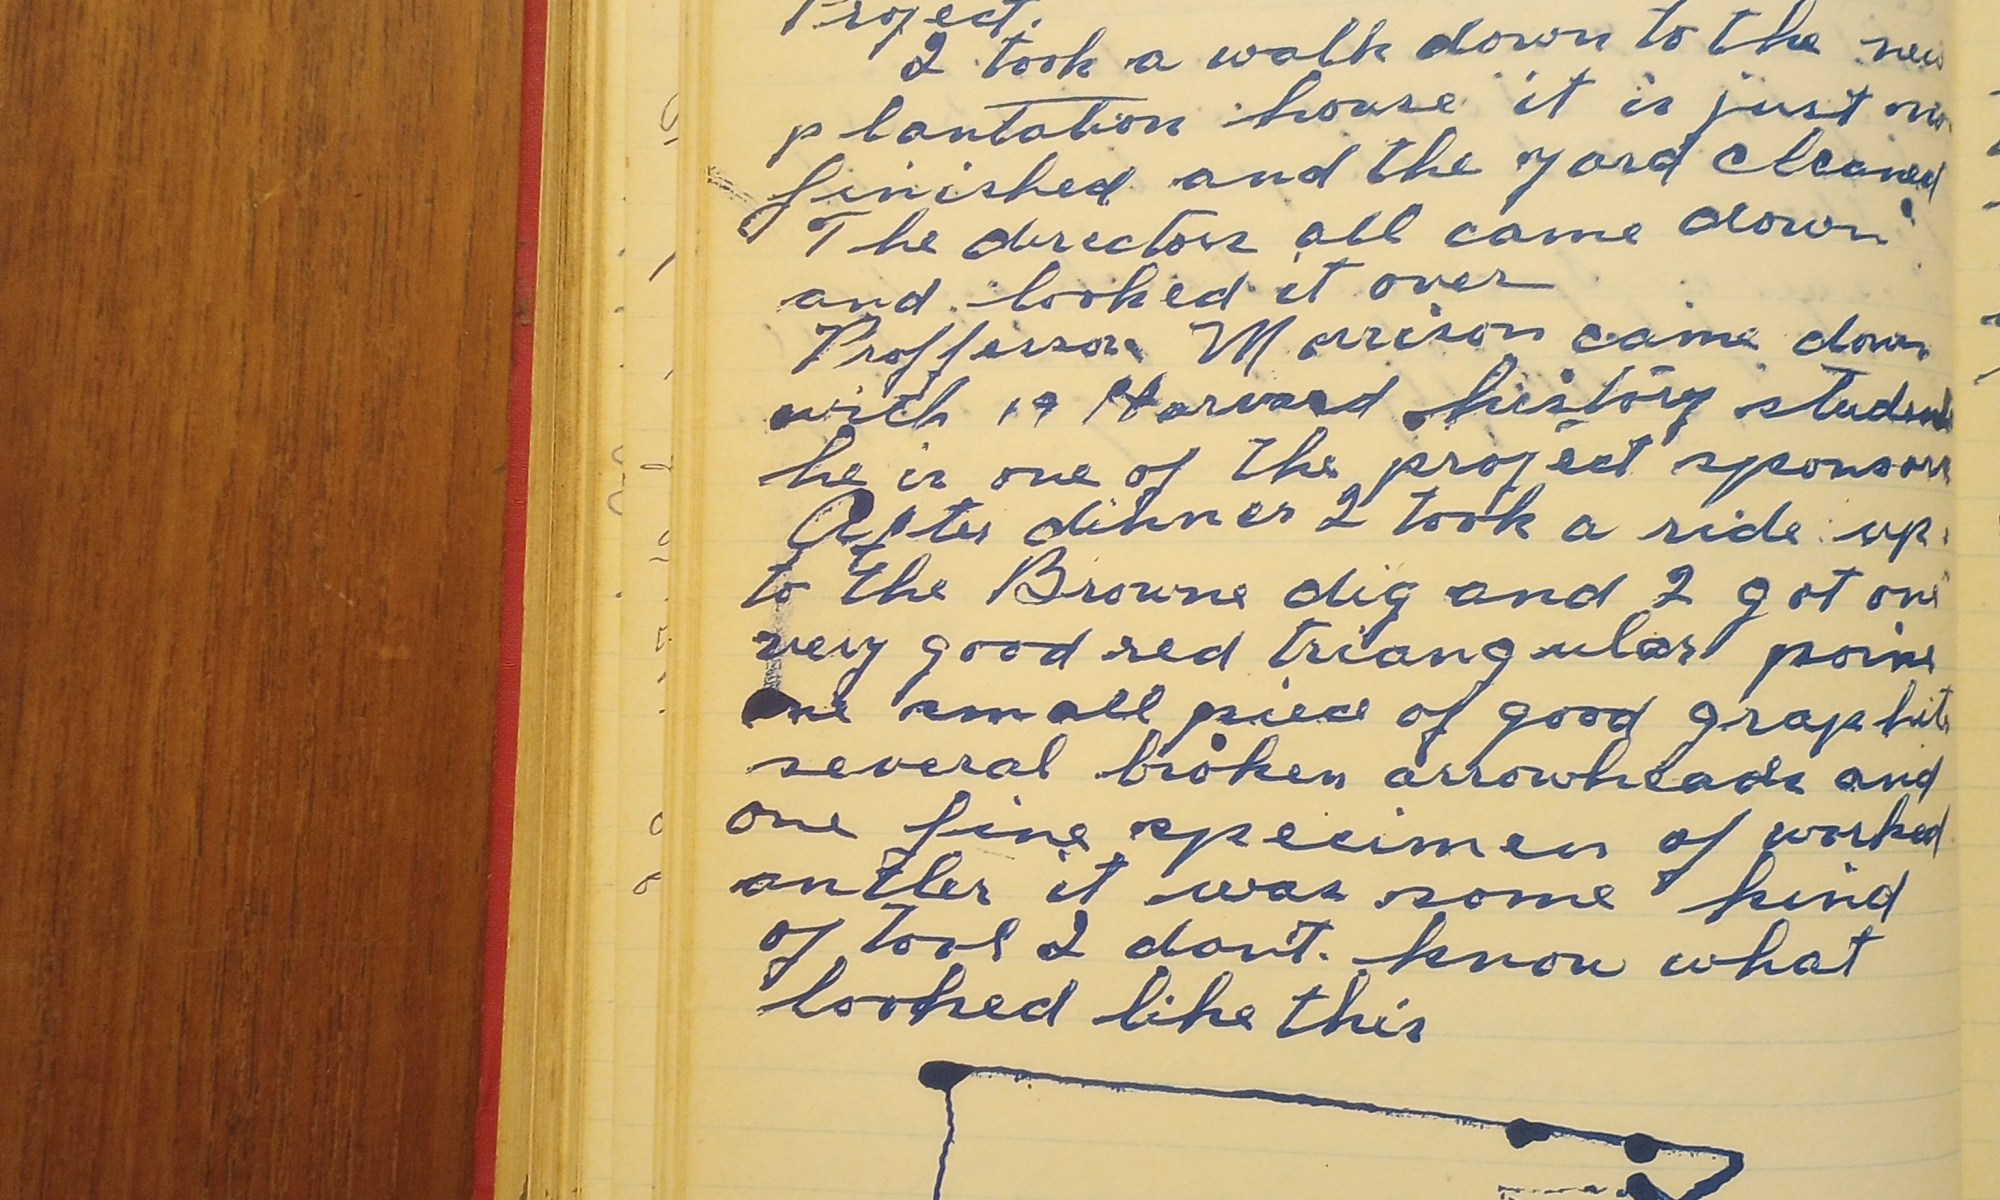 Project.
I took a walk down to the new
plantation house it is just now
finished and the yard cleaned
The directors all came down
and looked it over
Proffessor Morrison came down
with 19 Harvard history students
he is one of the project sponsors
After dinner I took a ride up
to the Browne dig and I got one
very good red triangular point
one small piece of good graphite
several broken arrowheads and
one fine specimen of worked
antler it was some kind
of tool I don't know what
looked like this